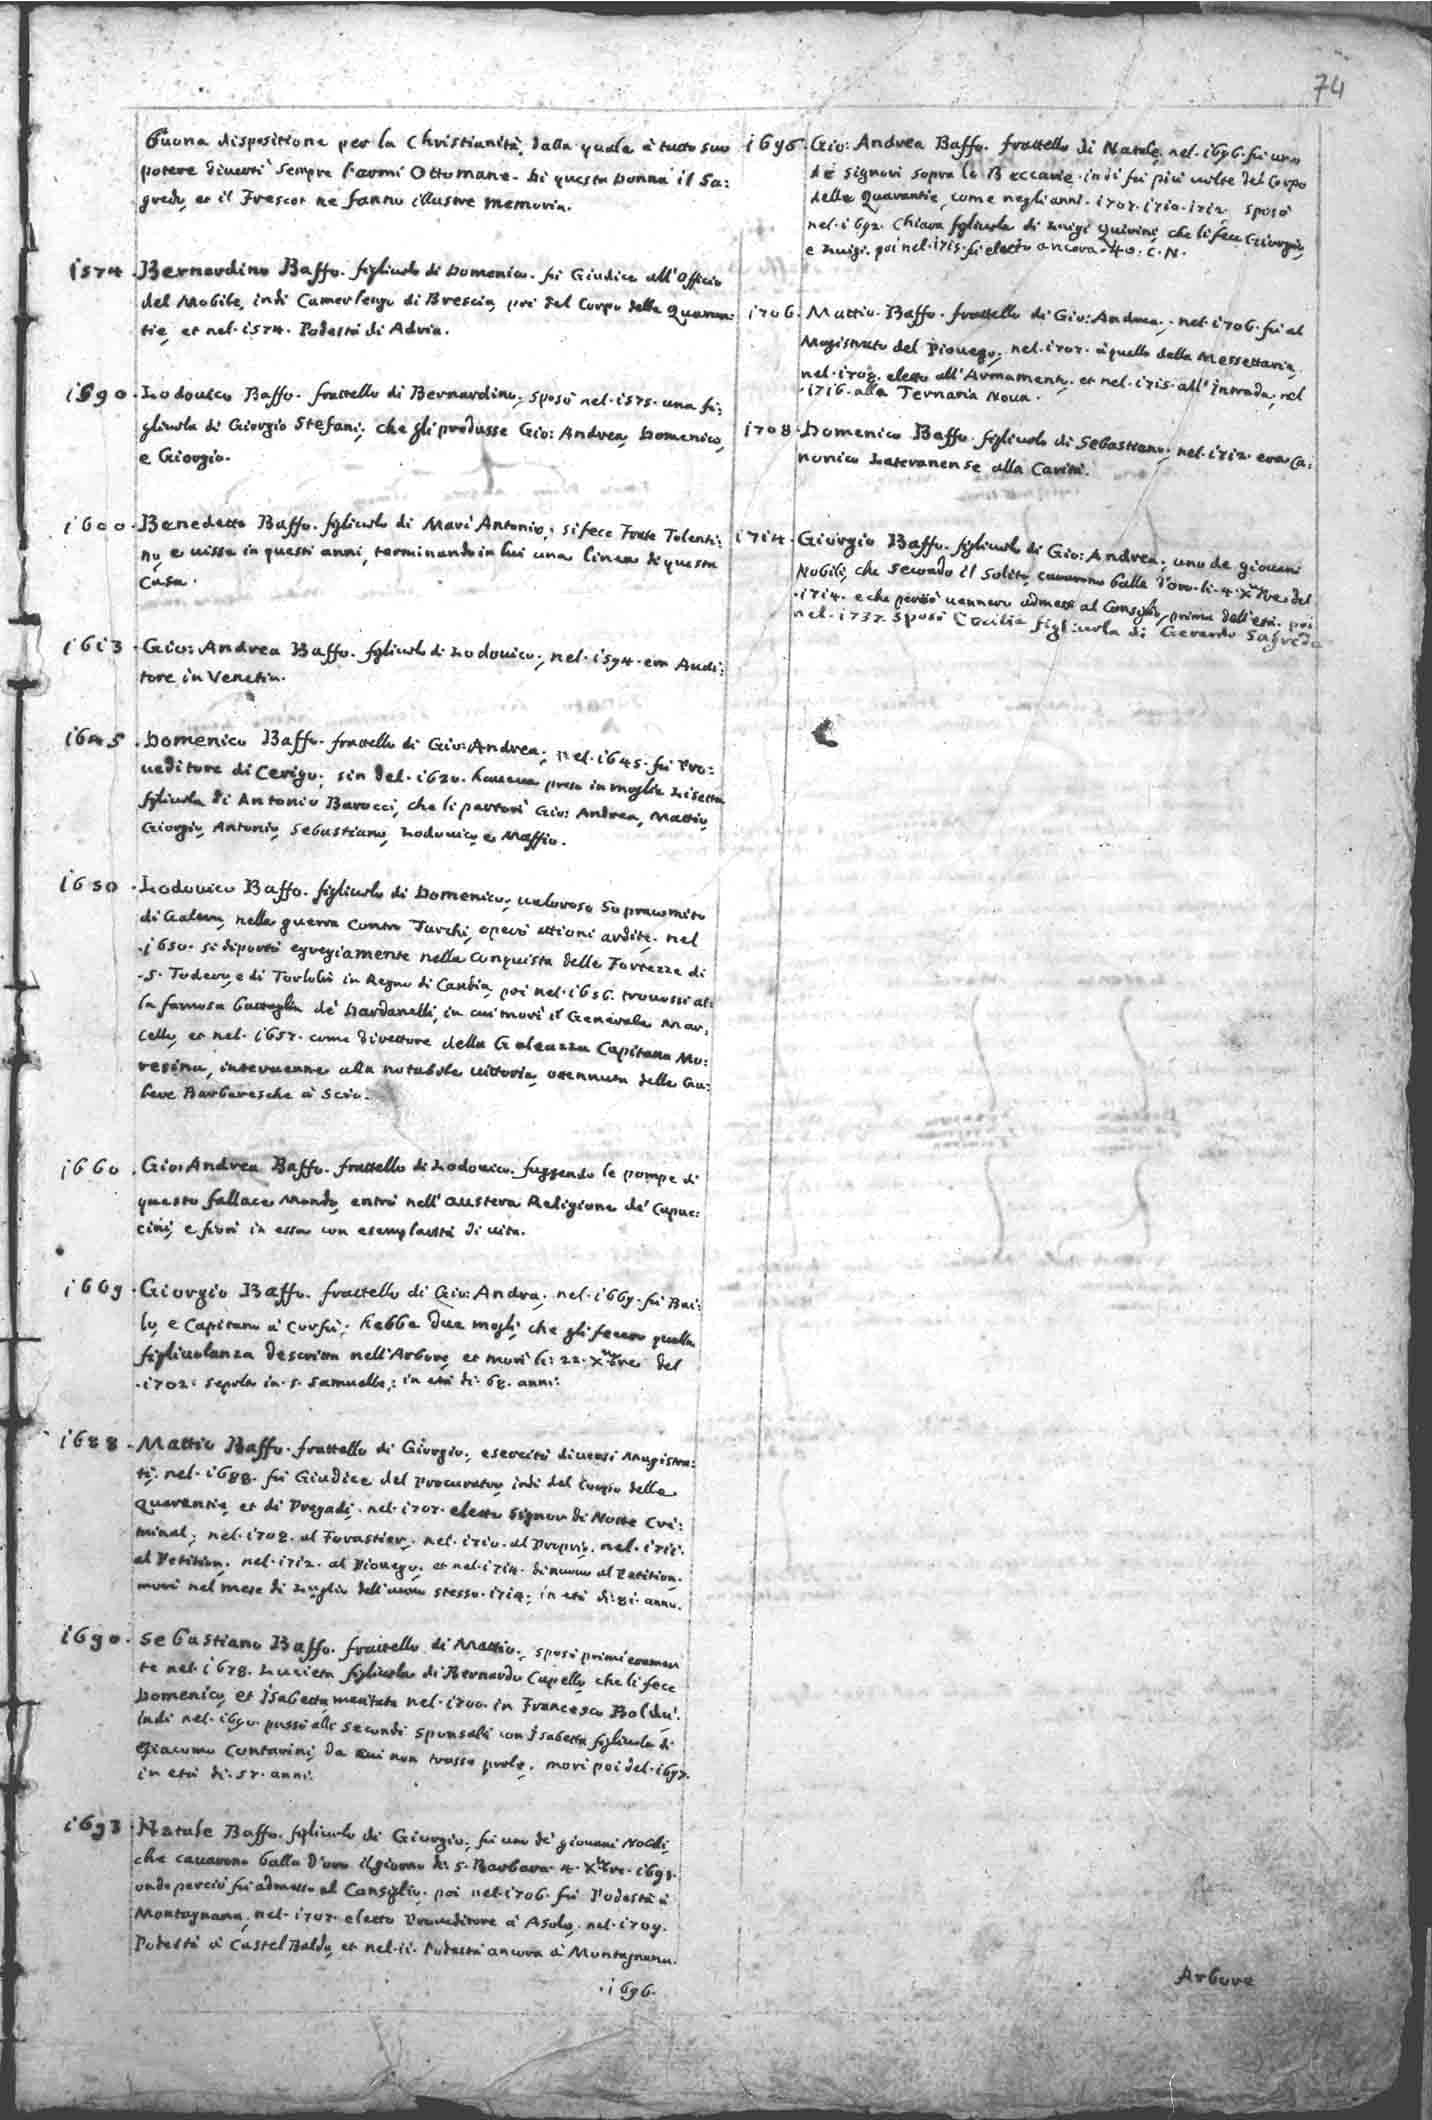 74
buona dispositione per la Christianità, dalla quale à tutto suo
potere divertì sempre l'armi Ottomane. Di questa Donna il Sa:
gredo, et il Frescot ne fanno illustre memoria.
1574. Bernardino Baffo. figliuolo di Domenico. fù Giudice all'Officio
del Mobile, indi Camerlengo di Brescia, poi del Corpo delle Quaran:
tie, et nel. 1574. Podestà di Adria.
1590. Lodovico Baffo. frattello di Bernardino, sposò nel. 1575. una fi:
gliuola di Giorgio Stefani, che gli produsse Gio: Andrea, Domenico,
e Giorgio.
1600. Benedetto Baffo. figliuolo di Marc'Antonio, si fece Frate Tolenti:
no, e visse in questi anni, terminando in lui una linea di questa
Casa.
1613. Gio: Andrea Baffo. figliuolo di Lodovico, nel. 1594. era Audi:
tore in Venetia.
1645. Domenico Baffo. frattello di Gio: Andrea, nel. 1645. fù Pro:
veditore di Cerigo, sin del. 1620. haveva preso in moglie Lisetta
figliuola di Antonio Barocci, che li partorì Gio: Andrea, Mattio,
Giorgio, Antonio, Sebastiano, Lodovico, e Maffio.
1650. Lodovico Baffo. figliuolo di Domenico, valoroso Sopracomito
di Galera, nella guerra contro Turchi, operò attioni ardite. nel
.1650. si diportò egregiamente nella Conquista delle Fortezze di
.S. Todero, e di Turlulù in Regno di Candia, poi nel. 1656. trovossi al:
la famosa battaglia de' Dardanelli, in cui morì il Generale Mar:
cello, et nel. 1657. come direttore della Galeazza Capitana Mo:
resina, intervenne alla notabile vittoria, ottenuta delle Ga:
lere Barbaresche à Scio.
1660. Gio: Andrea Baffo. frattello di Lodovico. fuggendo le pompe di
questo fallace Mondo, entrò nell'austera Religione de' Capuc:
cini, e fiorì in essa con esemplarità di vita.
1669. Giorgio Baffo. frattello di Gio: Andra, nel. 1669. fù Bai:
lo, e Capitano à Corfù, hebbe due mogli, che gli fecero quella
figliuolanza descritta nell'Arbore, et morì li: 22. Xmbre del
.1702: sepolto in. S. Samuelle, in età di: 68. anni:
1688. Mattio Baffo. frattello di Giorgio, esercitò diversi Magistra:
ti, nel. 1688. fù Giudice del Procurator, indi del Corpo della
Quarantie, et di Pregadi, nel. 1707. eletto Signor di Notte Cri:
minal, nel. 1708. al Forastier, nel. 1710. al Proprio, nel. 1711.
al Petition, nel. 1712. al Piovego, et nel. 1714. di nuovo al Petition.
morì nel mese di Luglio dell'anno stesso. 1714, in età di: 81. anno.
1690. Sebastiano Baffo. frattello di Mattio, sposò primieramen
te nel. 1678. Lucieta figliuola di Bernardo Capello, che li fece
Domenico, et Isabetta maritata nel. 1700. in Francesco Boldù.
Indi nel. 1690. passò alli secondi sponsali con Isabetta figliuola di
Giacomo Contarini, da cui non trasse prole, morì poi del. 1697.
in età di. 57. anni.
1693. Natale Baffo. figliuolo di Giorgio, fù uno de' giovani Nobili,
che cavarono balla d'oro il giorno di: S. Barbara. 4. Xmbre. 1693.
onde perciò fù admesso al Consiglio. poi nel. 1706. fù Podestà à
Montagnana, nel. 1707. eletto Proveditore à Asolo, nel. 1709.
Podestà à Castel Baldo, et nel. 11. Podestà ancora à Montagnana.
.1696.
1696. Gio: Andrea Baffo. frattello di Natale, nel. 1696. fù uno
de' Signori sopra le Beccarie. indi fù più volte del Corpo
delle Quarantie, come negli anni. 1707. 1710. 1712. sposò
nel. 1692. Chiara figliuola di Luigi Quirini, che li fece Giorgio,
e Luigi. poi nel. 1715. fù eletto ancora. 40. C. N.
1706. Mattio Baffo. frattello di Gio: Andrea, nel. 1706. fù al
Magistrato del Piovego, nel. 1707. à quello della Messettaria,
nel. 1708. eletto all'Armamento, et nel. 1715. all'Intrada, nel
.1716. alla Ternaria Nova.
1708. Domenico Baffo. figliuolo di Sebastiano, nel. 1712. era Ca:
nonico Lateranense alla Carità.
1714. Giorgio Baffo. figliuolo di Gio: Andrea, uno de giovani
Nobili, che secondo il solito, cavarono balla d'oro. li. 4. Xmbre del
.1714. e che perciò vennero admessi al Consiglio, prima dell'età. poi
nel. 1737. sposò Cecilia figliuola di Gerardo Sagredo
Arbore